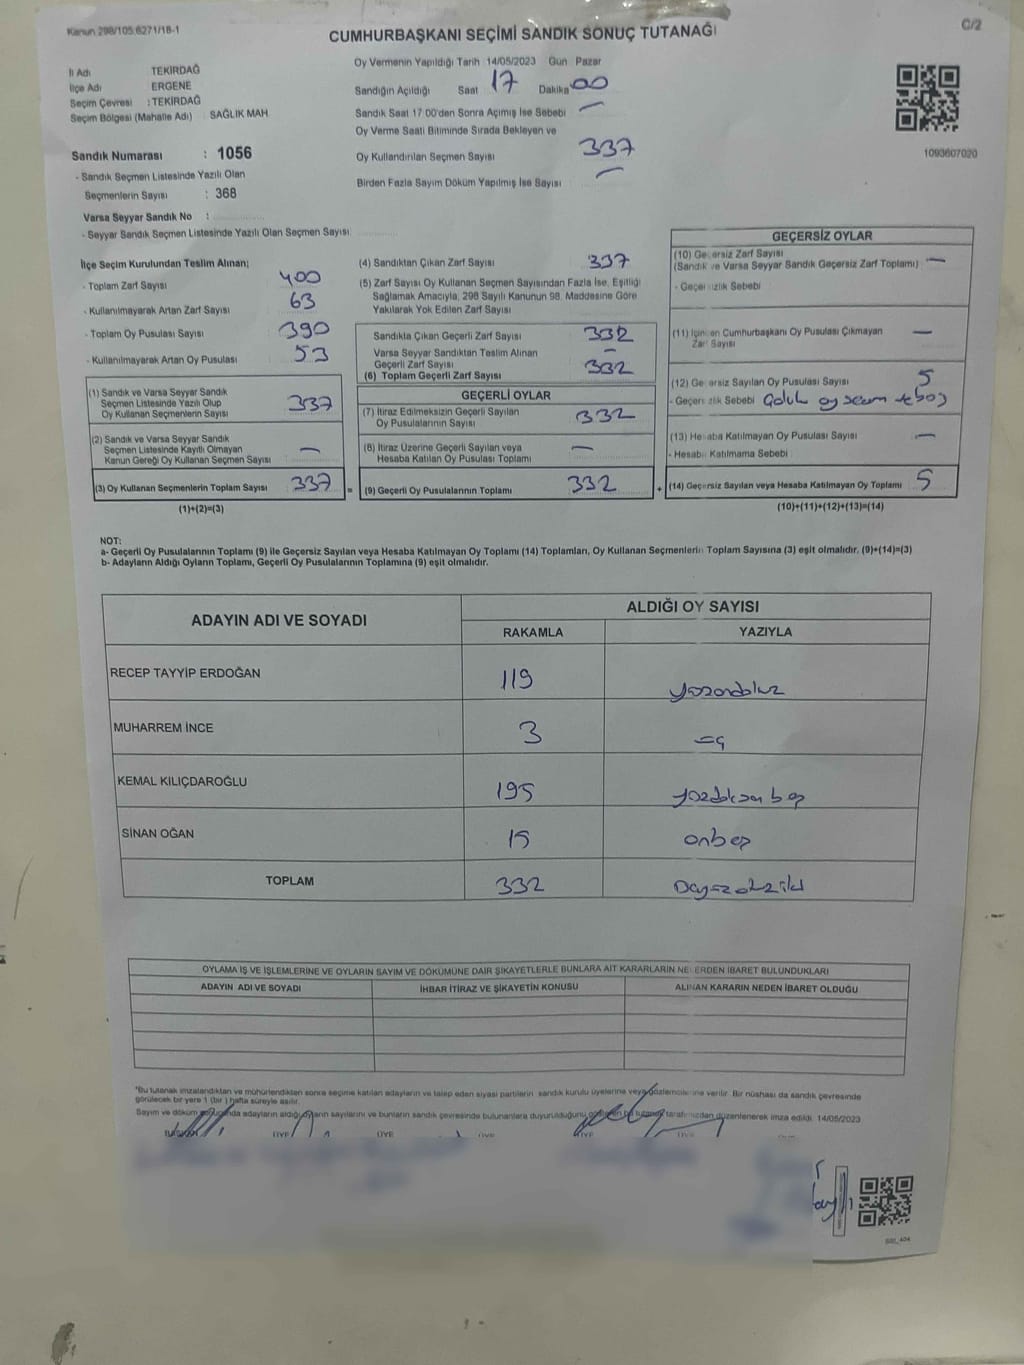 Kanun 298/105;6271/18-1
C/2
CUMHURBAŞKANI SEÇİMİ SANDIK SONUÇ TUTANAĞI
İl Adı TEKİRDAĞ
İlçe Adı ERGENE
Seçim Çevresi : TEKİRDAĞ
Seçim Bölgesi (Mahalle Adı) : SAĞLIK MAH
Sandık Numarası : 1056
- Sandık Seçmen Listesinde Yazılı Olan
Seçmenlerin Sayısı : 368
Varsa Seyyar Sandık No :
- Seyyar Sandık Seçmen Listesinde Yazılı Olan Seçmen Sayısı
Oy Vermenin Yapıldığı Tarih 14/05/2023 Gün Pazar
Sandığın Açıldığı Saat 17 Dakika 00
Sandık Saat 17:00'den Sonra Açımış İse Sebebi —
Oy Verme Saati Bitiminde Sırada Bekleyen ve
Oy Kullandırılan Seçmen Sayısı 337
Birden Fazla Sayım Döküm Yapılmış İse Sayısı —
1093607020
İlçe Seçim Kurulundan Teslim Alınan;
- Toplam Zarf Sayısı 400
- Kullanılmayarak Artan Zarf Sayısı 63
- Toplam Oy Pusulası Sayısı 390
- Kullanılmayarak Artan Oy Pusulası 53
(1) Sandık ve Varsa Seyyar Sandık
Seçmen Listesinde Yazılı Olup
Oy Kullanan Seçmenlerin Sayısı 337
(2) Sandık ve Varsa Seyyar Sandık
Seçmen Listesinde Kayıtlı Olmayan
Kanun Gereği Oy Kullanan Seçmen Sayısı —
(3) Oy Kullanan Seçmenlerin Toplam Sayısı 337 =
(1)+(2)=(3)
(4) Sandıktan Çıkan Zarf Sayısı 337
(5) Zarf Sayısı Oy Kullanan Seçmen Sayısından Fazla İse, Eşitliği
Sağlamak Amacıyla, 298 Sayılı Kanunun 98. Maddesine Göre
Yakılarak Yok Edilen Zarf Sayısı
Sandıkta Çıkan Geçerli Zarf Sayısı 332
Varsa Seyyar Sandıktan Teslim Alınan
Geçerli Zarf Sayısı —
(6) Toplam Geçerli Zarf Sayısı 332
GEÇERLİ OYLAR
(7) İtiraz Edilmeksizin Geçerli Sayılan
Oy Pusulalarının Sayısı 332
(8) İtiraz Üzerine Geçerli Sayılan veya
Hesaba Katılan Oy Pusulası Toplamı —
(9) Geçerli Oy Pusulalarının Toplamı 332 +
GEÇERSİZ OYLAR
(10) Geçersiz Zarf Sayısı
(Sandık ve Varsa Seyyar Sandık Geçersiz Zarf Toplamı) —
- Geçersizlik Sebebi
(11) İçinden Cumhurbaşkanı Oy Pusulası Çıkmayan
Zarf Sayısı —
(12) Geçersiz Sayılan Oy Pusulası Sayısı 5
- Geçersizlik Sebebi
(13) Hesaba Katılmayan Oy Pusulası Sayısı —
- Hesaba Katılmama Sebebi
(14) Geçersiz Sayılan veya Hesaba Katılmayan Oy Toplamı 5
(10)+(11)+(12)+(13)=(14)
NOT:
a- Geçerli Oy Pusulalarının Toplamı (9) ile Geçersiz Sayılan veya Hesaba Katılmayan Oy Toplamı (14) Toplamları, Oy Kullanan Seçmenlerin Toplam Sayısına (3) eşit olmalıdır. (9)+(14)=(3)
b- Adayların Aldığı Oyların Toplamı, Geçerli Oy Pusulalarının Toplamına (9) eşit olmalıdır.
ADAYIN ADI VE SOYADI
ALDIĞI OY SAYISI
RAKAMLA YAZIYLA
RECEP TAYYİP ERDOĞAN 119 yüzondokuz
MUHARREM İNCE 3 üç
KEMAL KILIÇDAROĞLU 195 yüzdoksan beş
SİNAN OĞAN 15 onbeş
TOPLAM 332 üçyüzotuziki
OYLAMA İŞ VE İŞLEMLERİNE VE OYLARIN SAYIM VE DÖKÜMÜNE DAİR ŞİKAYETLERLE BUNLARA AİT KARARLARIN NELERDEN İBARET BULUNDUKLARI
ADAYIN ADI VE SOYADI İHBAR İTİRAZ VE ŞİKAYETİN KONUSU ALINAN KARARIN NEDEN İBARET OLDUĞU
*Bu tutanak imzalandıktan ve mühürlendikten sonra seçime katılan adayların ve talep eden siyasi partilerin sandık kurulu üyelerine veya gözlemcilerine verilir. Bir nüshası da sandık çevresinde
görülecek bir yere 1 (bir ) hafta süreyle asılır.
Sayım ve döküm sonucunda adayların aldığı oyların sayılarını ve bunların sandık çevresinde bulunanlara duyurulduğunu gösteren bu tutanak tarafımızdan düzenlenerek imza edildi. 14/05/2023
ÜYE ÜYE ÜYE ÜYE ÜYE